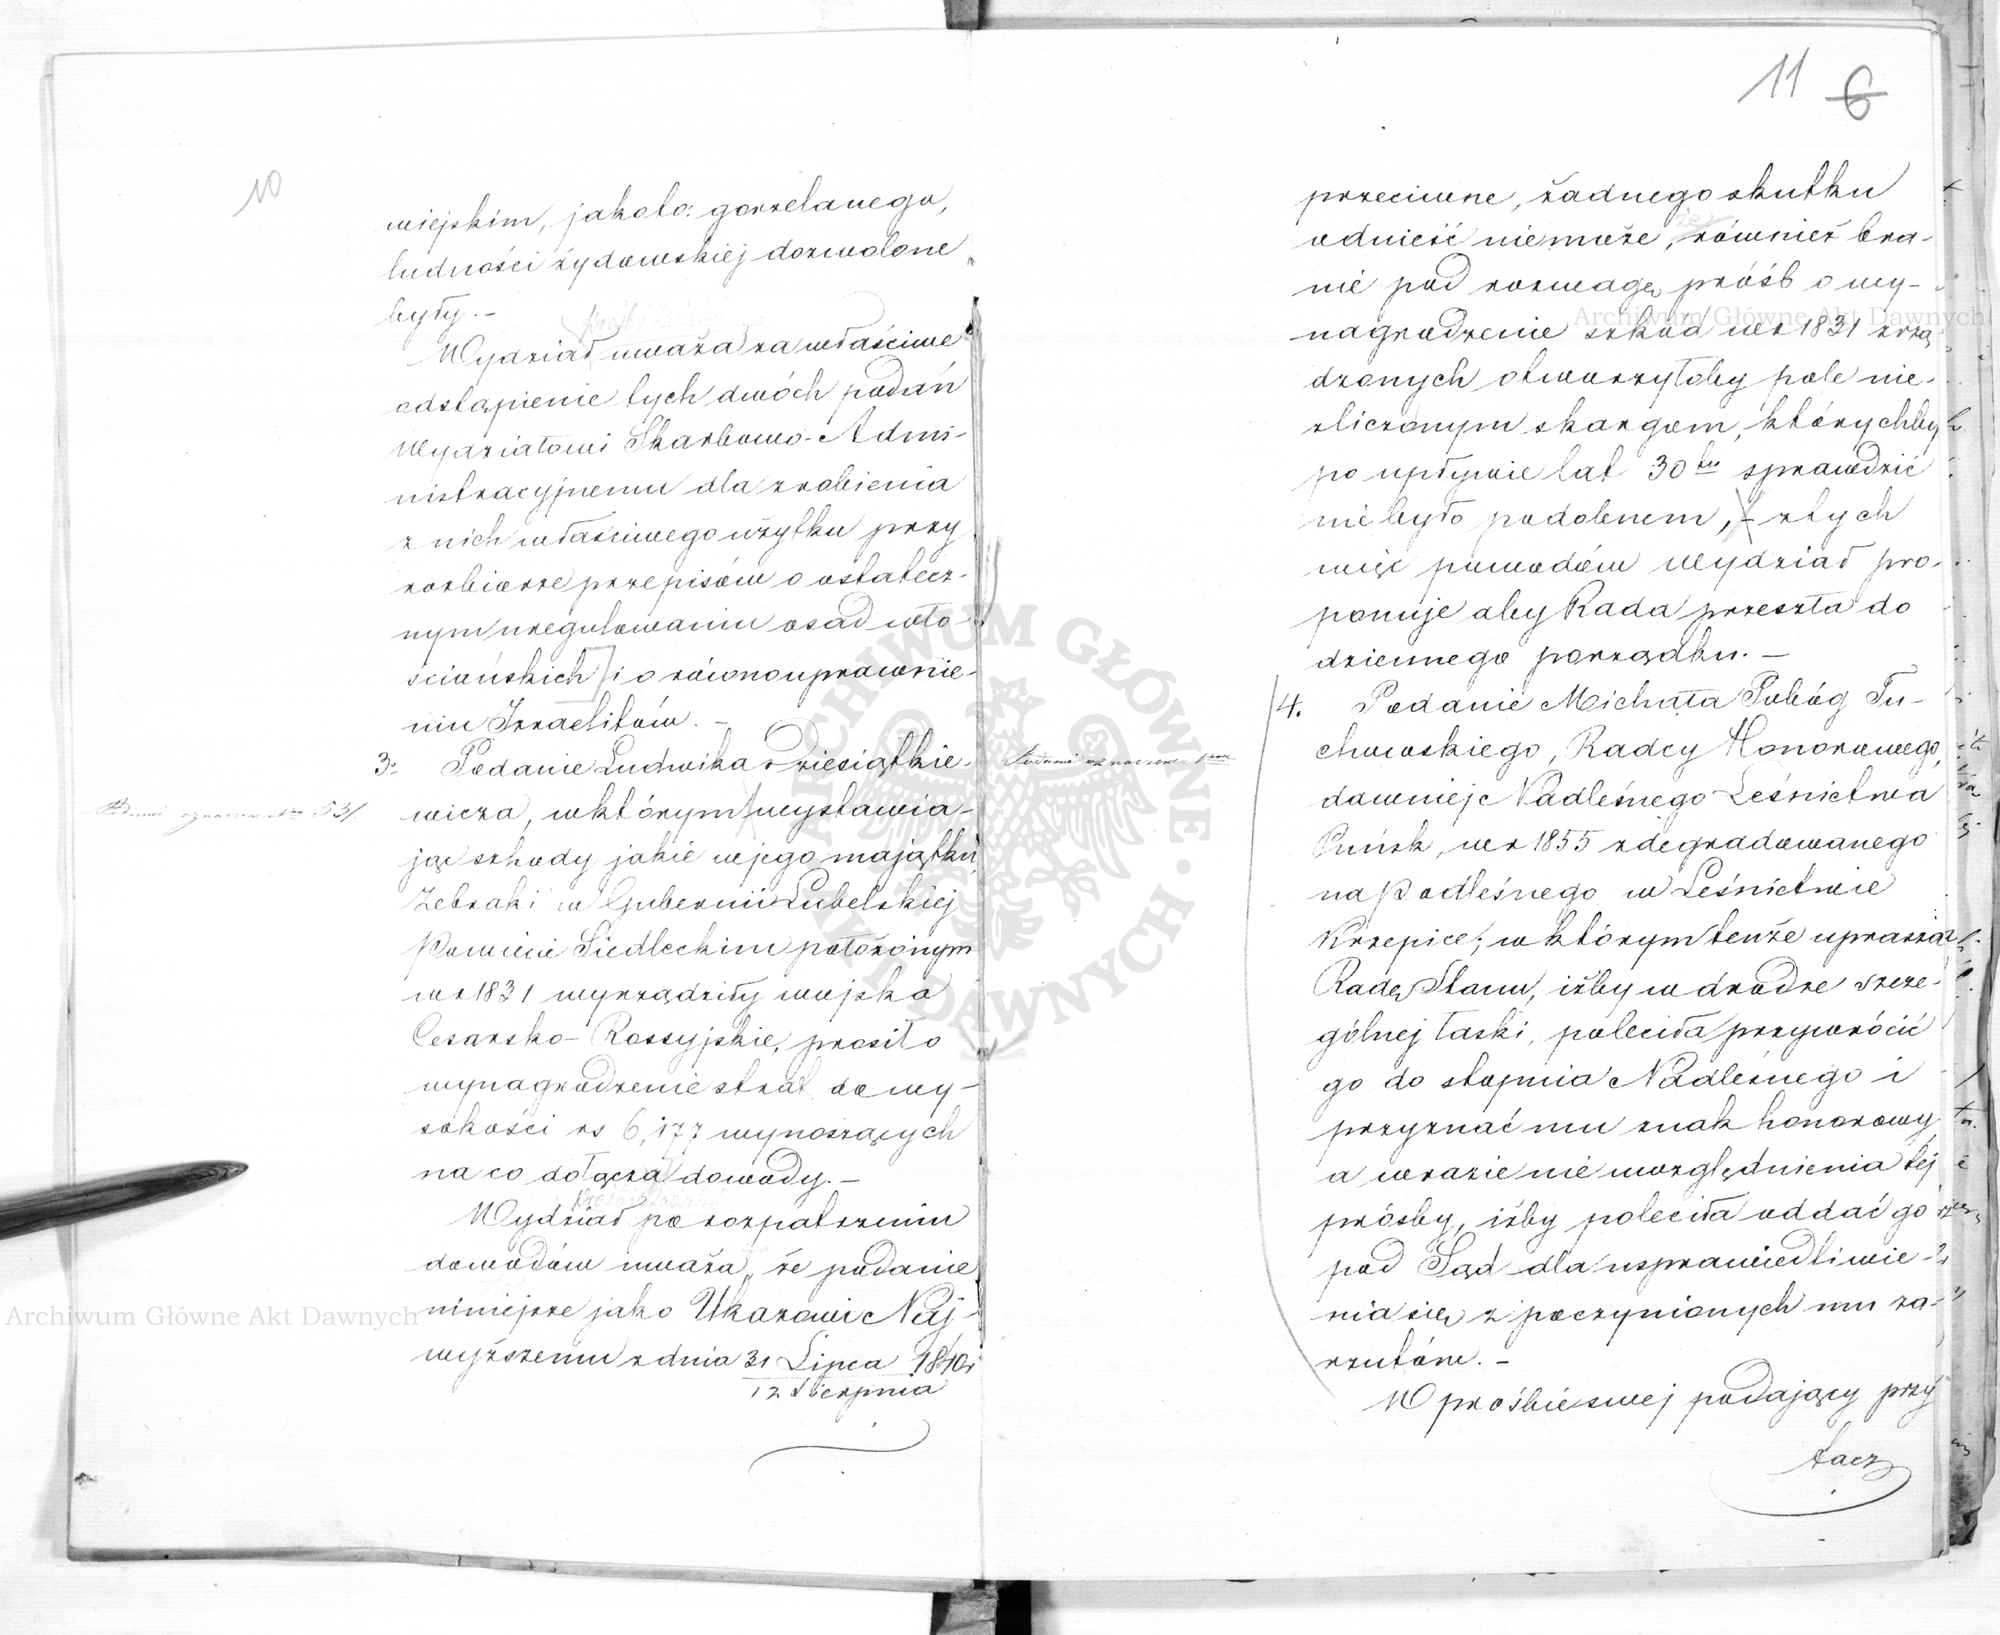 10
wiejskim, jakoto: gorzelanego,
ludności żydowskiej dozwolone
były. –
Wydział uważa za właściwe
odstąpienie tych dwóch podań
Wydziałowi Skarbowo-Admi-
nistracyjnemu dla zrobienia
z nich właściwego użytku przy
rozbiorze przepisów o ostatecz-
nym uregulowaniu osad wło-
ściańskich i o równouprawnie-
niu Izraelitów. –
3o Podanie Ludwika Dziesiątkie-
wicza, w którym wystawia-
jąc szkody jakie w jego majątku
Żebraki w Gubernii Lubelskiej
Powiecie Siedleckim położonym
w r 1831 wyrządziły wojska
Cesarsko-Rossyjskie, prosił o
wynagrodzenie strat do wy-
sokości rs 6,177 wynoszących
na co dołącza dowody. –
Wydział po rozpatrzeniu
dowodów uważa, że podanie
niniejsze jako Ukazowi Naj-
wyższemu z dnia 31 Lipca 1840 r
12 Sierpnia
11 6
przeciwne, żadnego skutku
odnieść nie może, również bra-
nie pod rozwagę próśb o wy-
nagrodzenie szkód w r 1831 zrzą-
dzonych otworzyłoby pole nie-
zliczonym skargom, którychby
po upływie lat 30tu sprawdzić
nie było podobnem, – z tych
więc powodów Wydział pro-
ponuje aby Rada przeszła do
dziennego porządku. –
4. Podanie Michała Pobóg Tu-
chowskiego, Radcy Honorowego,
dawniej Nadleśnego Leśnictwa
Puńsk, w r 1855 zdegradowanego
na Podleśnego w Leśnictwie
Krzepice; w którym tenże uprasza
Radę Stanu, iżby w drodze szcze-
gólnej łaski, poleciła przywrócić
go do stopnia Nadleśnego i
przyznać mu znak honorowy
a w razie nie uwzględnienia tej
prośby, iżby poleciła oddać go
pod Sąd dla usprawiedliwie-
nia się z poczynionych mu za-
rzutów. –
W prośbie swej podający przy
łacz
Archiwum Główne Akt Dawnych
Archiwum Główne Akt Dawnych
ARCHIWUM GŁÓWNE AKT DAWNYCH